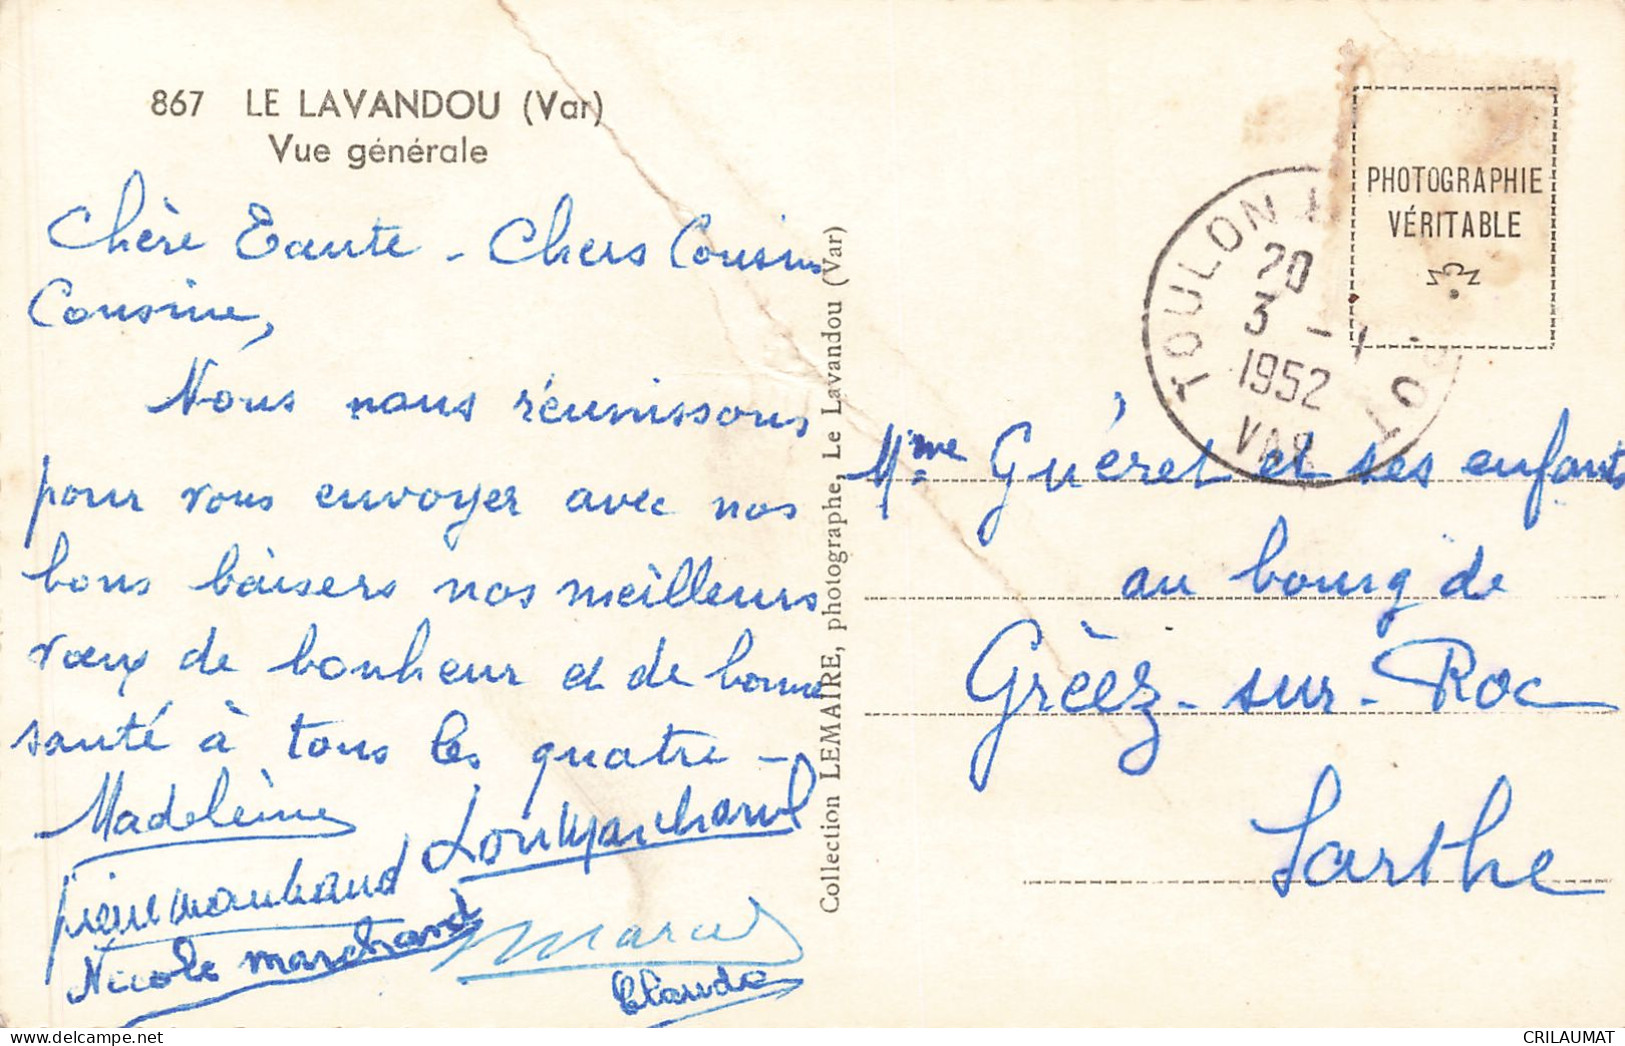 867 LE LAVANDOU (Var)
Vue générale
Chère Tante - Chers Cousins
Cousine,
Nous nous réunissons
pour vous envoyer avec nos
bons baisers nos meilleurs
vœux de bonheur et de bonne
santé à tous les quatre -
Madeleine
Marchand
pierre marchand
Nicole marchand
Marcel
Claude
Collection LEMAIRE, photographe, Le Lavandou (Var)
TOULON
20
3 - 1
1952
VAR
PHOTOGRAPHIE
VÉRITABLE
Mme Guéret et ses enfants
au bourg de
Gréez-sur-Roc
Sarthe
CRILAUMAT